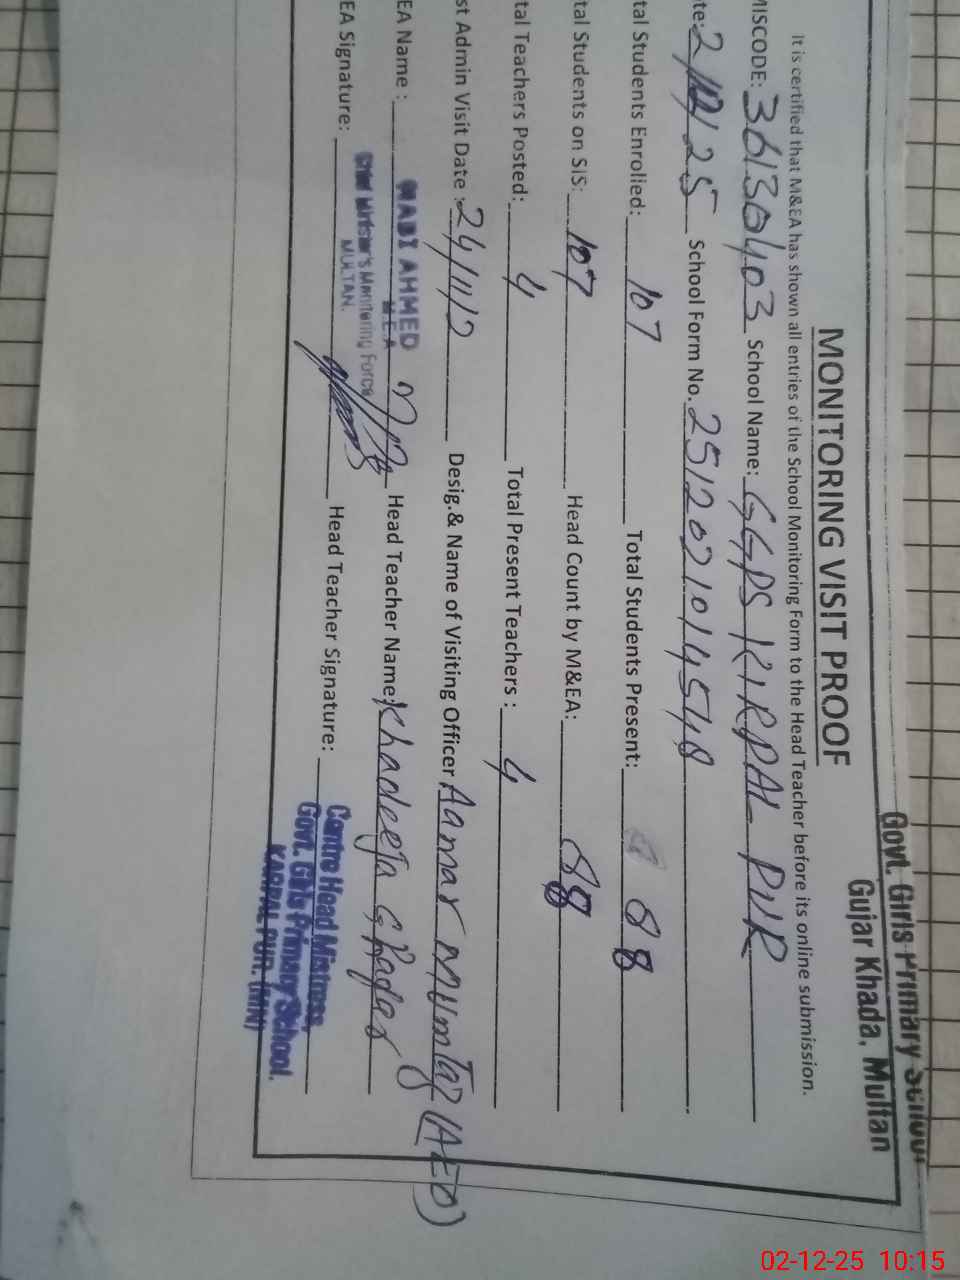 Govt. Girls Primary School
Gujar Khada, Multan
MONITORING VISIT PROOF
It is certified that M&EA has shown all entries of the School Monitoring Form to the Head Teacher before its online submission.
MISCODE: 36130403 School Name: GGPS KIRPAL PUR
te: 2/12/25 School Form No. 2512021014548
tal Students Enrolled: 107 Total Students Present: 88
tal Students on SIS: 107 Head Count by M&EA: 88
tal Teachers Posted: 4 Total Present Teachers: 4
st Admin Visit Date: 24/11/12 Desig.& Name of Visiting Officer Aamar Mumtaz (AEO)
EA Name: ABI AHMED Head Teacher Name: Khadeeja
M.E.A
Chief Minister's Monitoring Force
MULTAN.
EA Signature: Head Teacher Signature:
Centre Head Mistress,
Govt. Girls Primary School.
KARPAL PUR. (MN)
02-12-25 10:15